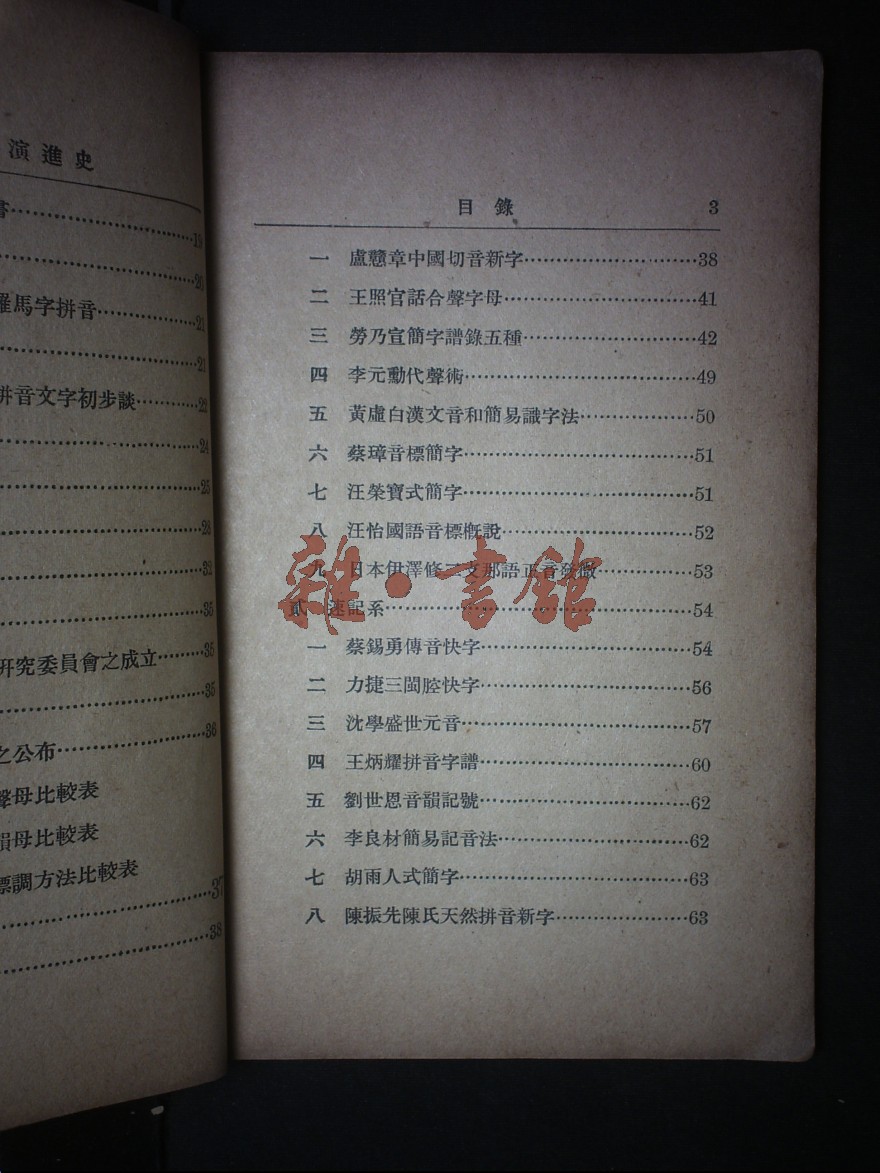 演進史
書……19
……20
羅馬字拼音……21
……21
拼音文字初步談……22
……24
……25
……28
……32
……35
研究委員會之成立……35
……35
之公布……36
聲母比較表
韻母比較表
標調方法比較表
……37
……38
目錄 3
一 盧戇章中國切音新字……38
二 王照官話合聲字母……41
三 勞乃宣簡字譜錄五種……42
四 李元勳代聲術……49
五 黃虛白漢文音和簡易識字法……50
六 蔡璋音標簡字……51
七 汪榮寶式簡字……51
八 汪怡國語音標概說……52
九 日本伊澤修二支那語正音發微……53
貳 速記系……54
一 蔡錫勇傳音快字……54
二 力捷三閩腔快字……56
三 沈學盛世元音……57
四 王炳耀拼音字譜……60
五 劉世恩音韻記號……62
六 李良材簡易記音法……62
七 胡雨人式簡字……63
八 陳振先陳氏天然拼音新字……63
雜·書館